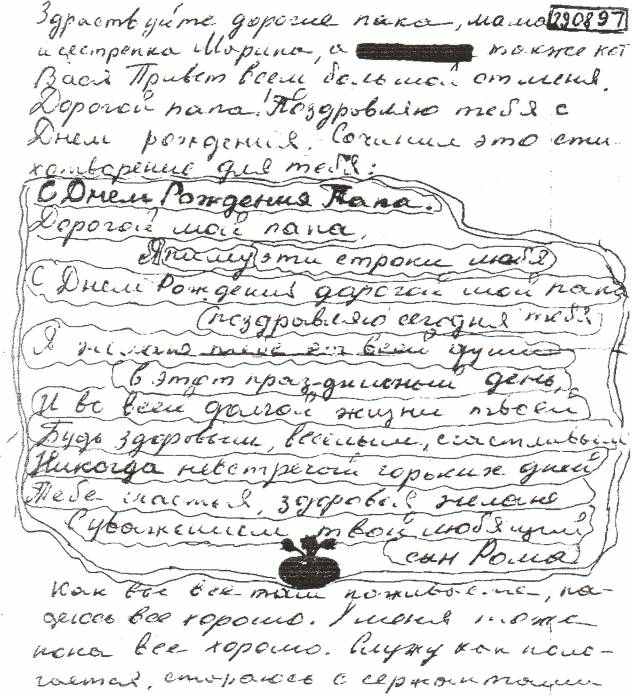 Здраствуйте дорогие папа, мама 290897
и сестренка Марина, а также кот
Вася Привет всем большой от меня.
Дорогой папа! Поздровляю тебя с
Днем рождения. Сочинил это сти-
хотворение для тебя:
С Днем Рождения Папа.
Дорогой мой папа,
Я пишу эти строки любя
С Днем Рождения дорогой мой папа
поздровляю сегодня тебя
Я желаю тебе от всей души
В этот праздничный день,
И во всей долгой жизни твоей
Будь здоровым, веселым, счастливым
Никогда невстречай горьких дней
Тебе счастья, здоровья желаю
С уважением твой любящий
сын Рома
Как вы все там поживаете, на-
деюсь все хорошо. У меня тоже
пока все хорошо. Служу как поло-
гается, стораюсь с сержантами